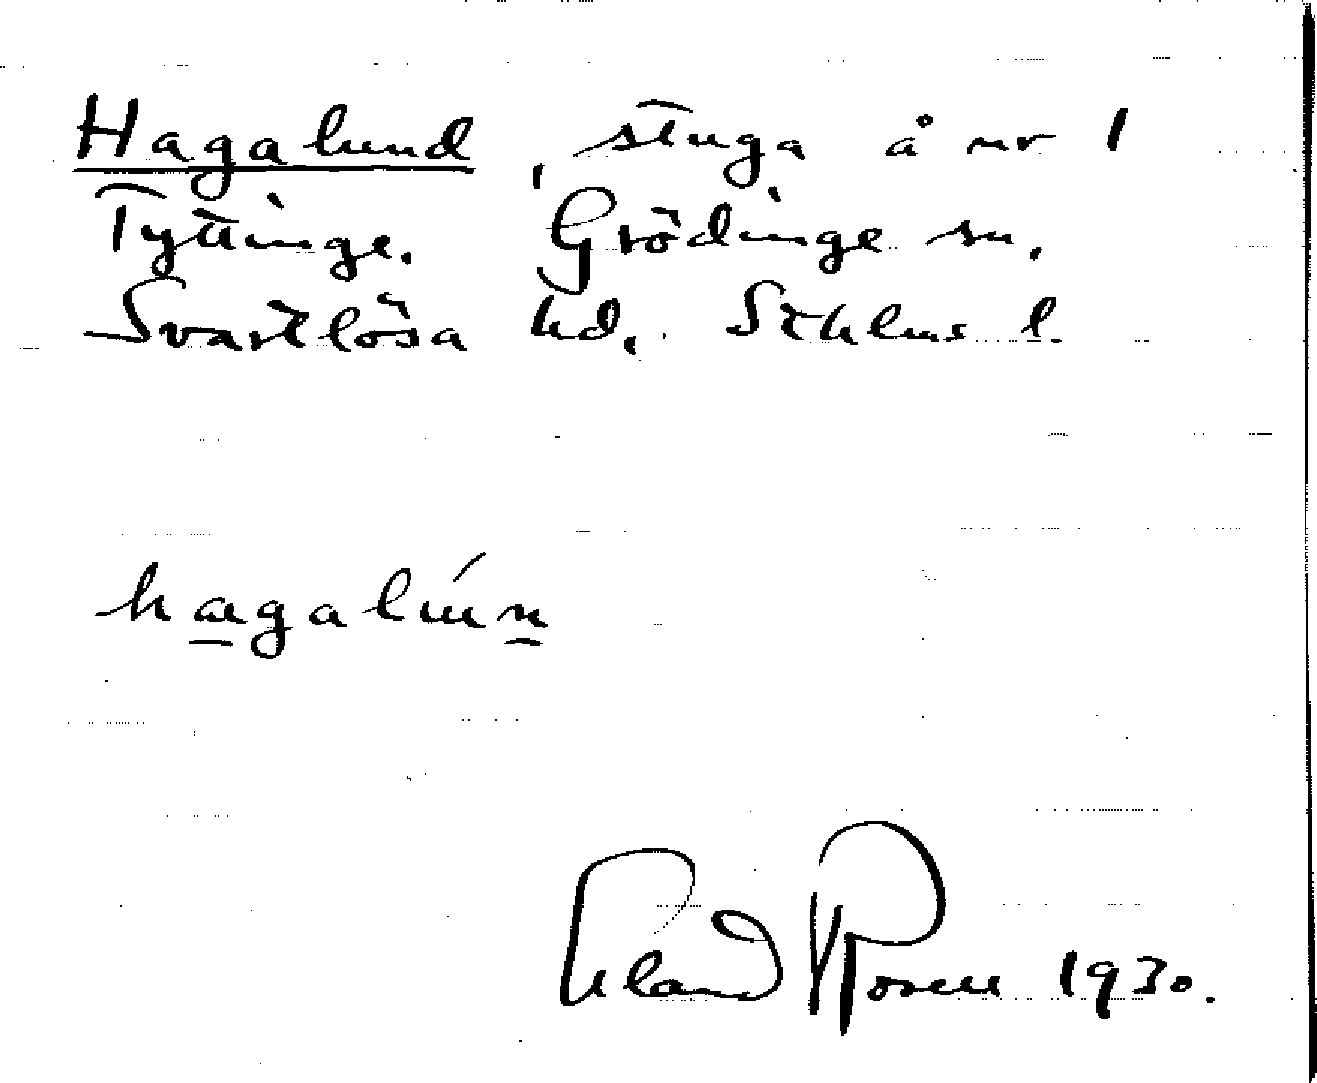 Hagalund, stuga å nr 1
Tyttinge. Grödinge sn.
Svartlösa hd. Sthlms l.
hagalún
Erland Rosell 1930.